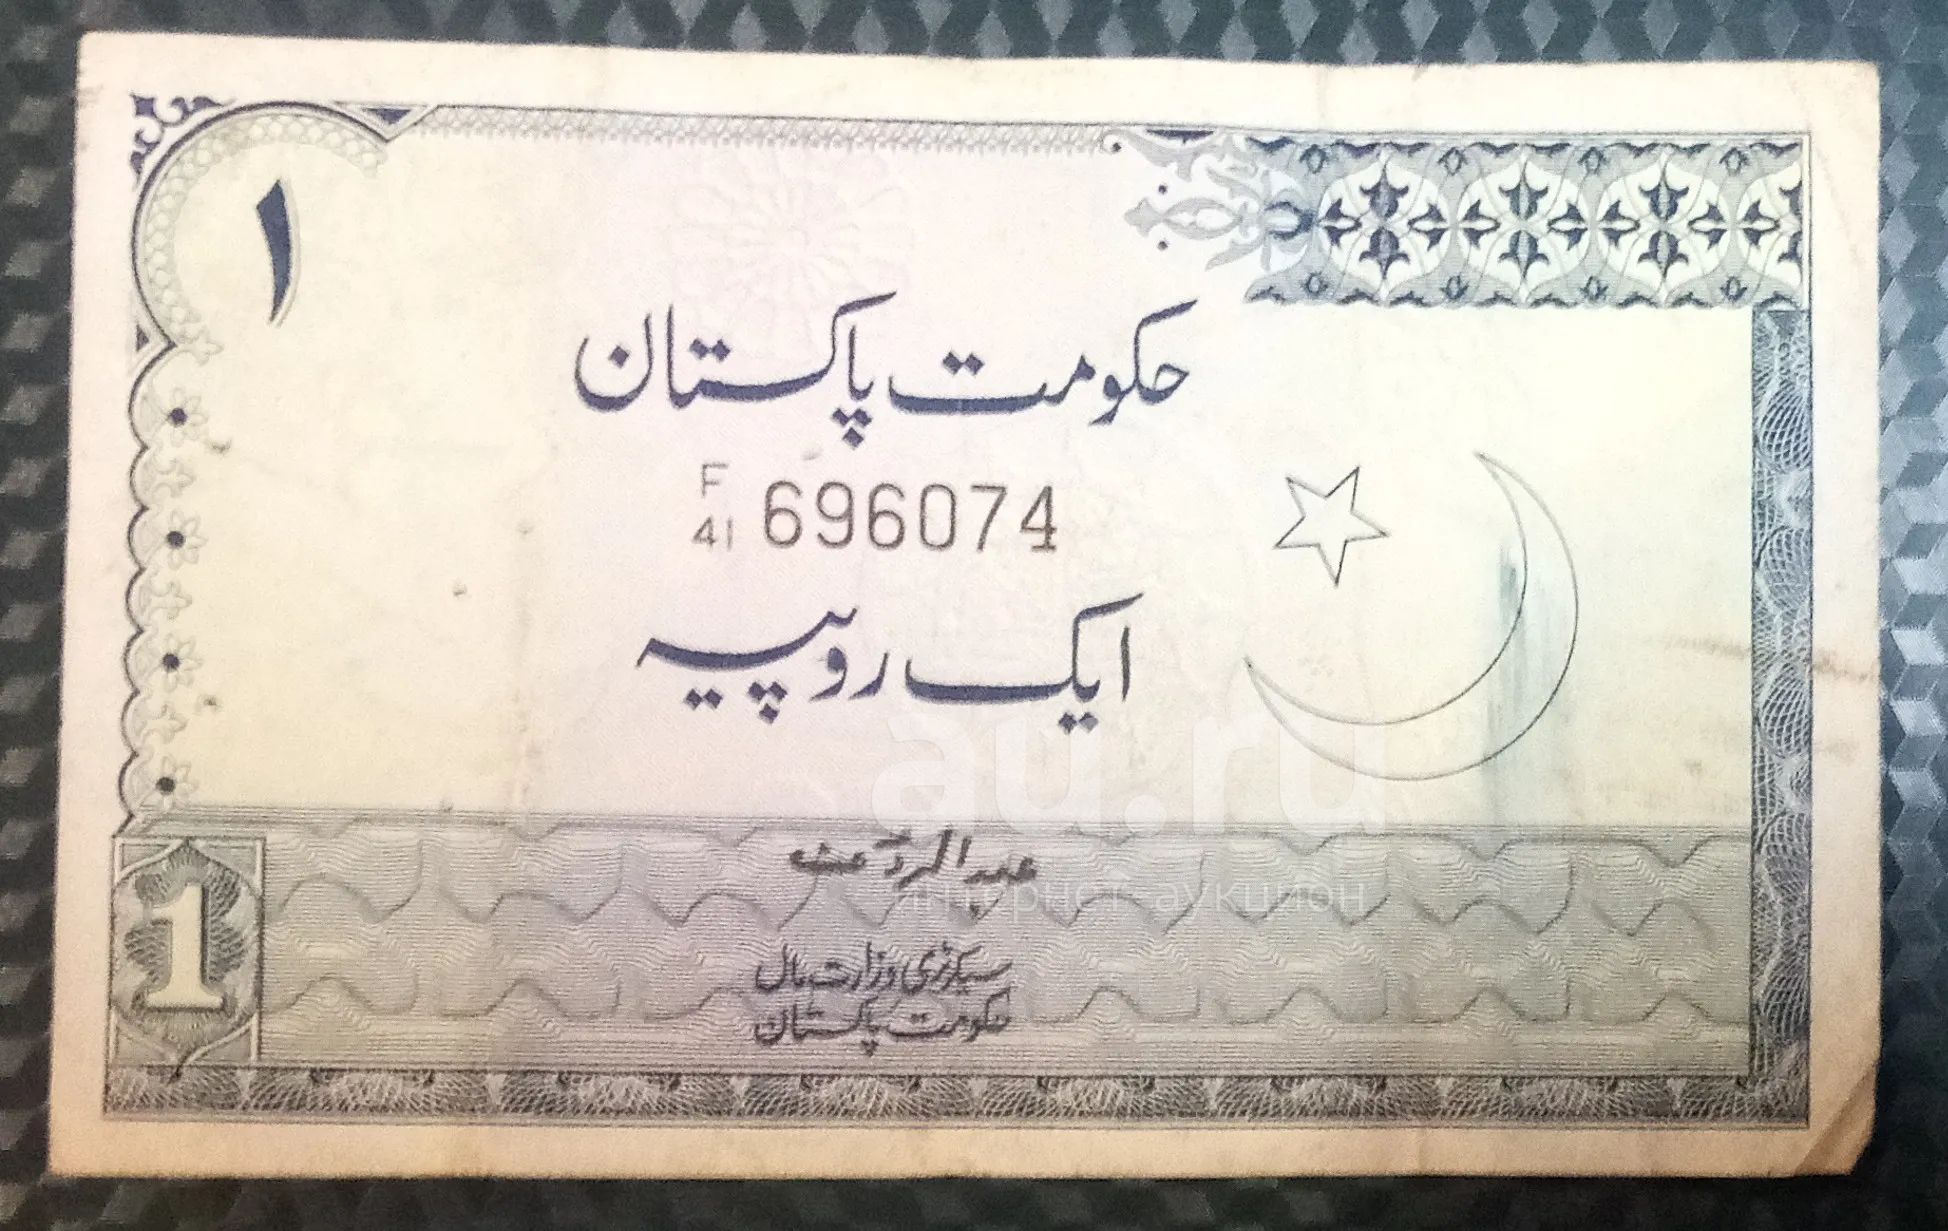 ۱
حکومت پاکستان
F
41 696074
ایک روپیہ
au.ru
интернет-аукцион
سیکرٹری وزارت مال
حکومت پاکستان
1